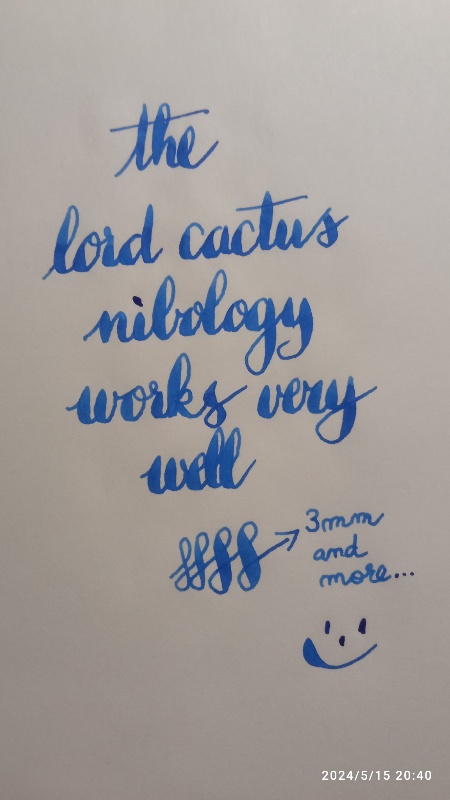 the
lord cactus
nibology
works very
well
ffff → 3mm
and
more...
2024/5/15 20:40